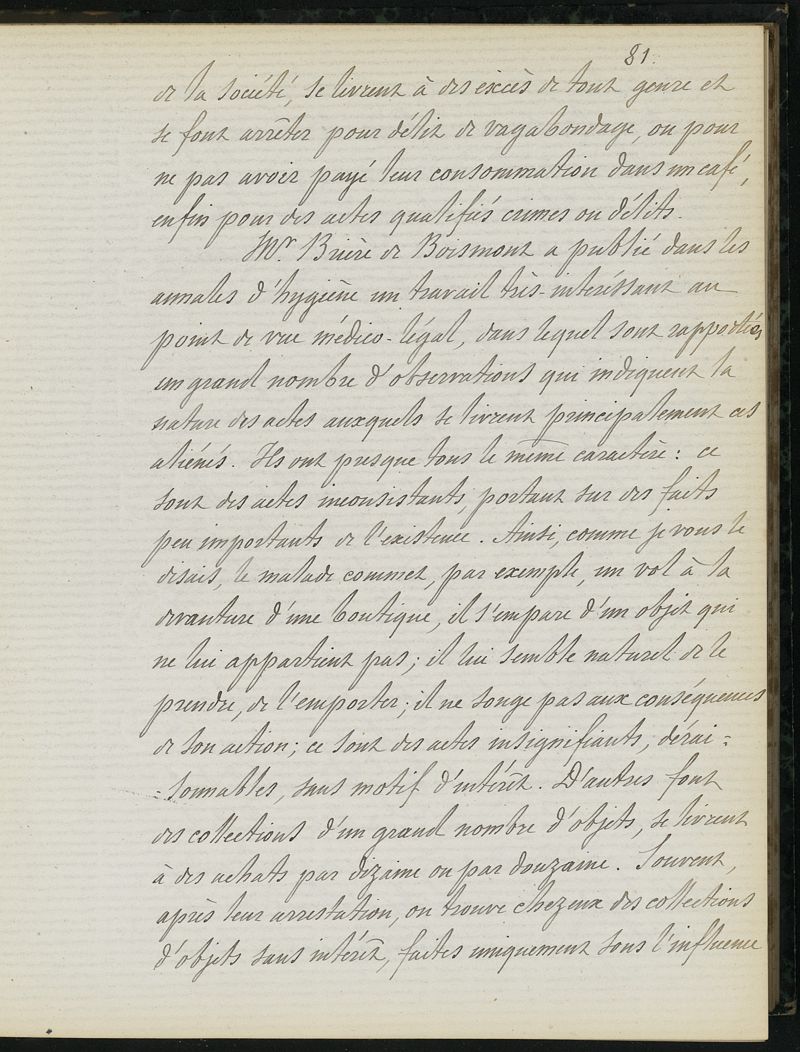 81.
de la société, se livrent à des excès de tout genre et
se font arrêter pour délit de vagabondage, ou pour
ne pas avoir payé leur consommation dans un café,
enfin pour des actes qualifiés crimes ou délits.
Mr. Brière de Boismont a publié dans les
annales d'hygiène un travail très-intéréssant au
point de vue médico-légal, dans lequel sont rapportées
un grand nombre d'observations qui indiquent la
nature des actes auxquels se livrent principalement ces
aliénés. Ils ont presque tous le même caractère : ce
sont des actes inconsistants, portant sur des faits
peu importants de l'existence. Ainsi, comme je vous le
disais, le malade commet, par exemple, un vol à la
devanture d'une boutique, il s'empare d'un objet qui
ne lui appartient pas ; il lui semble naturel de le
prendre, de l'emporter ; il ne songe pas aux conséquences
de son action ; ce sont des actes insignifiants, dérai=
=sonnables, sans motif d'intérêt. D'autres font
des collections d'un grand nombre d'objets, se livrent
à des achats par dizaine ou par douzaine. Souvent,
après leur arrestation, on trouve chez eux des collections
d'objets sans intérêt, faites uniquement sous l'influence